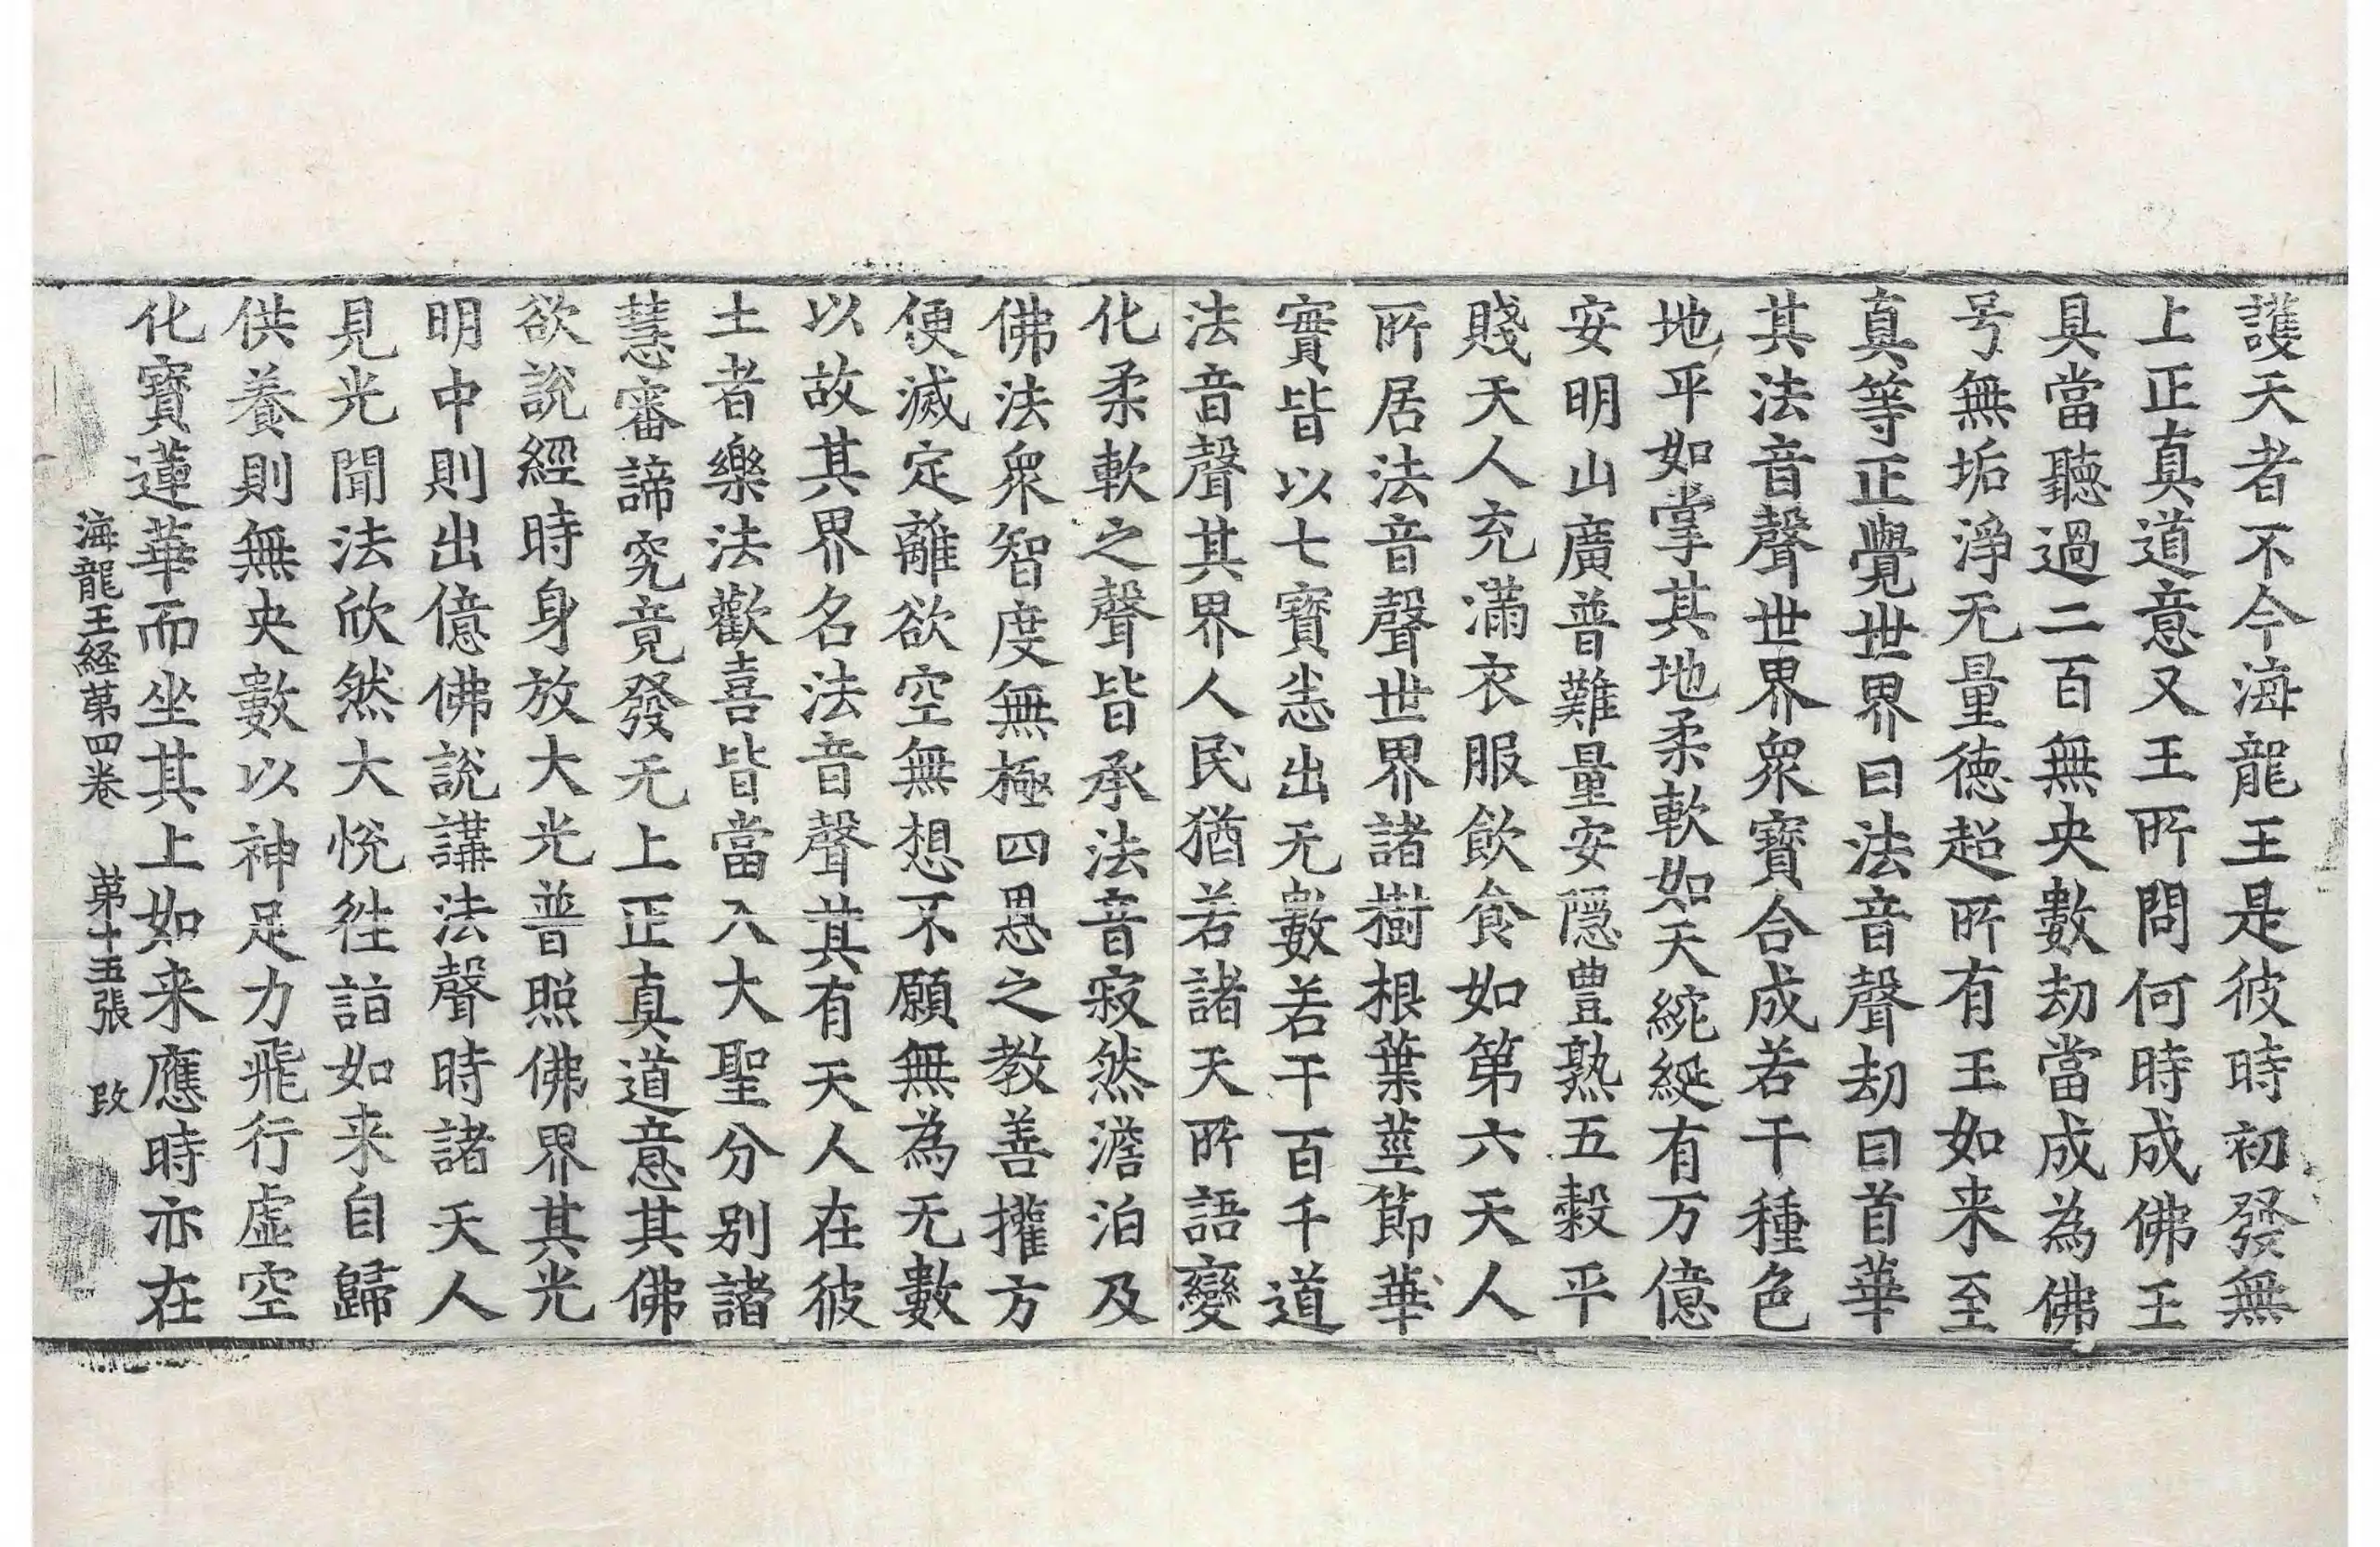 護天者不今海龍王是彼時初發無
上正真道意又王所問何時成佛王
具當聽過二百無央數劫當成為佛
号無垢淨无量徳超所有王如来至
真等正覺世界曰法音聲劫曰首華
其法音聲世界衆寶合成若干種色
地平如掌其地柔軟如天綩綖有万億
安明山廣普難量安隠豊熟五穀平
賤天人充滿衣服飲食如第六天人
所居法音聲世界諸樹根葉莖節華
實皆以七寶恙出无數若干百千道
法音聲其界人民猶若諸天所語變
化柔軟之聲皆承法音寂然澹泊及
佛法衆智度無極四恩之教善攉方
便滅定離欲空無想不願無為无數
以故其界名法音聲其有天人在彼
土者樂法歡喜皆當入大聖分別諸
慧審諦究竟發无上正真道意其佛
欲說經時身放大光普照佛界其光
明中則出億佛說講法聲時諸天人
見光聞法欣然大悅往詣如来自歸
供養則無央數以神足力飛行虛空
化寶蓮華而坐其上如来應時亦在
海龍王経第四巻 第十五張 改